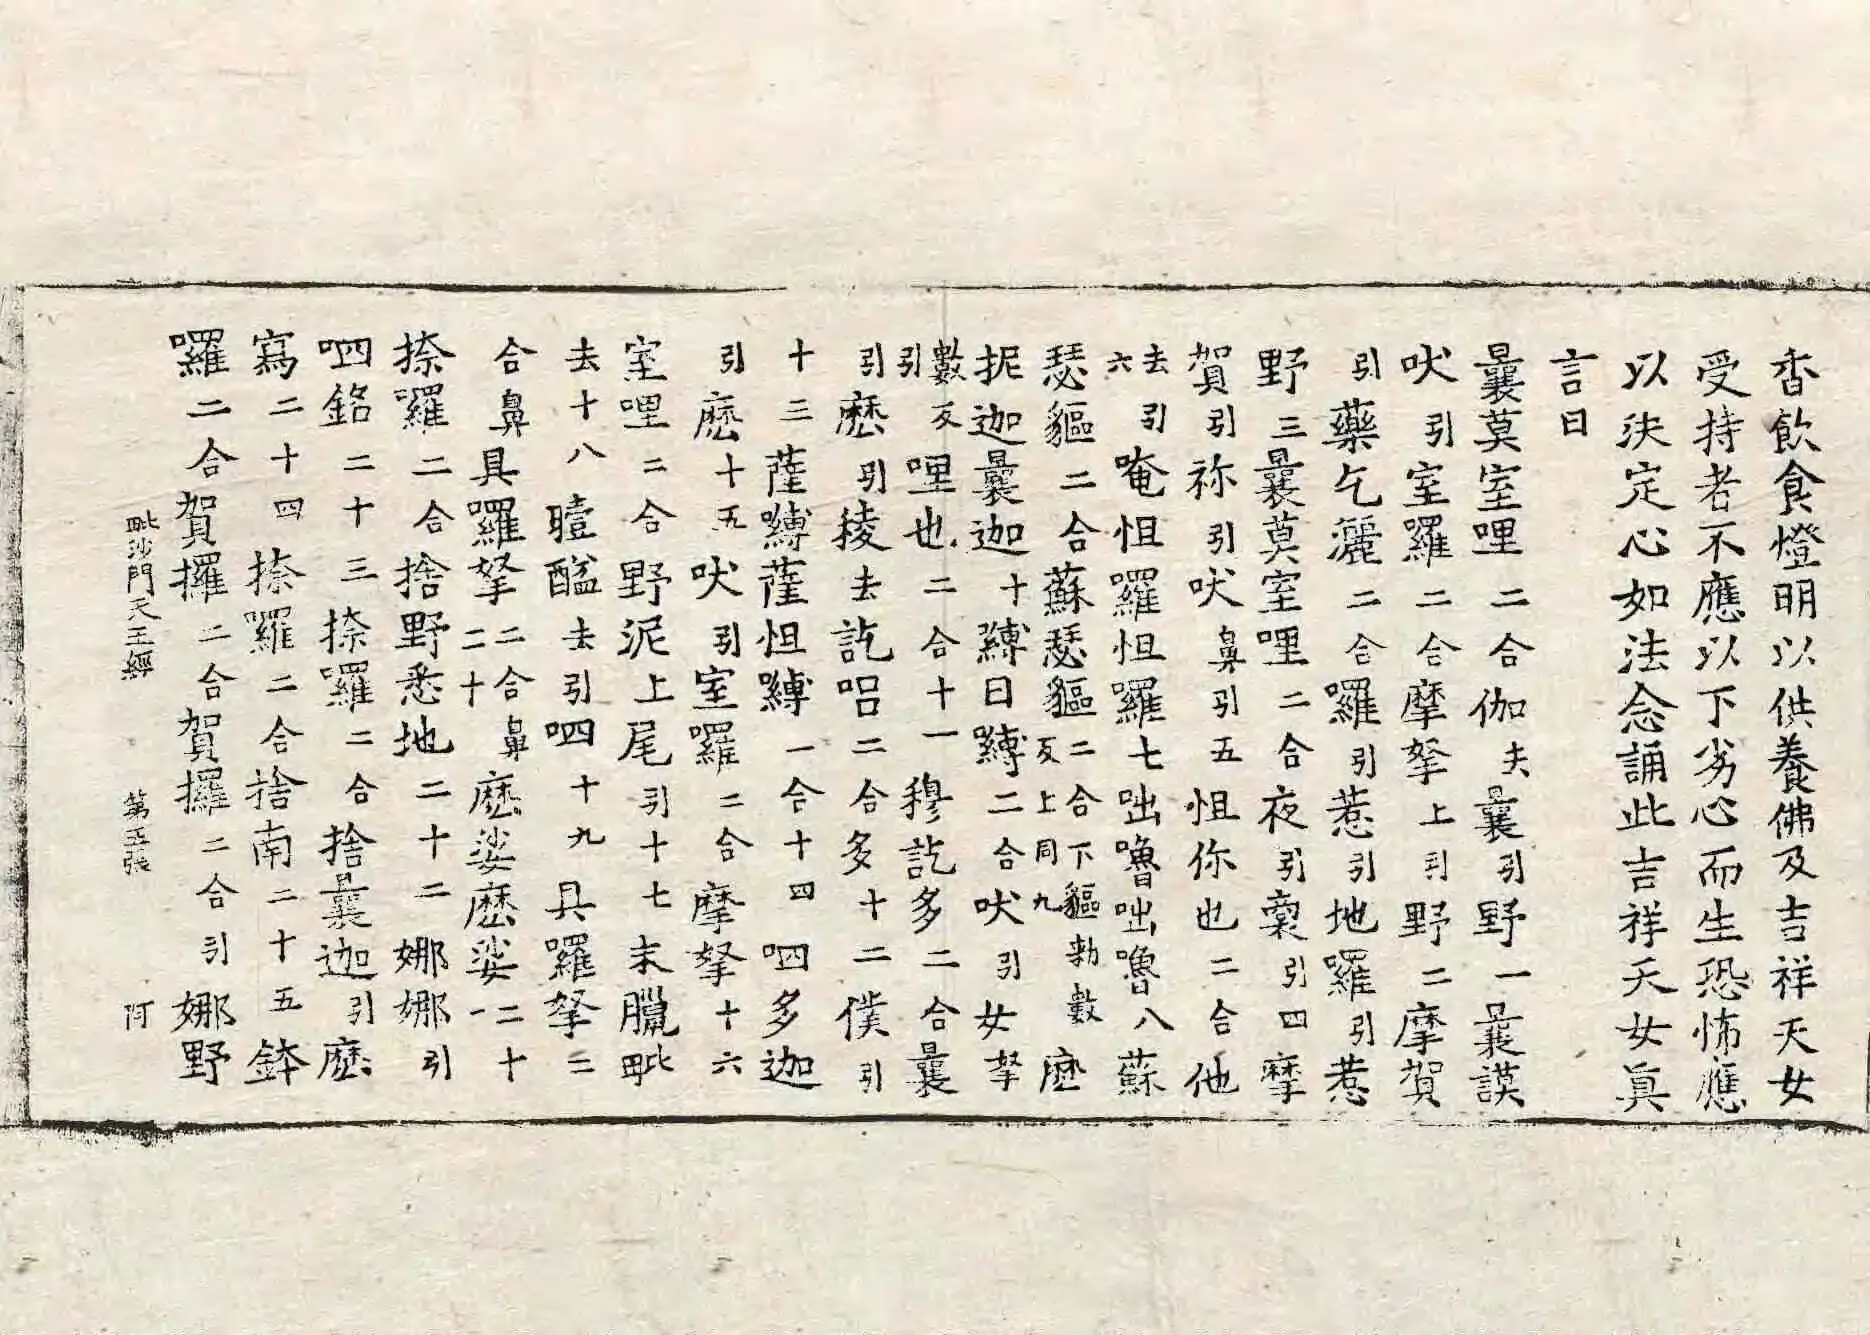 香飲食燈明以供養佛及吉祥天女
受持者不應以下劣心而生恐怖應
以決定心如法念誦此吉祥天女眞
言曰
曩莫室哩二合伽夫曩引野一曩謨
吠引室羅二合摩拏上引野二摩賀
引藥乞灑二合囉引惹引地羅引惹
野三曩莫室哩二合夜引裏引四摩
賀引祢引吠鼻引五怛你也二合他
去引六唵怛羅怛羅七咄嚕咄嚕八蘇
瑟軀二合蘇瑟軀二合下軀勑數反上同九麽
抳迦曩迦十嚩日嚩二合吠引女拏
數反引哩也二合十一穆訖多二合曩
引麽引㥄去訖呂二合多十二僕引
十三薩嚩薩怛嚩一合十四呬多迦
引麽十五吠引室囉二合摩拏十六
室哩二合野泥上尾引十七末臘毗
去十八瞳醯去引呬十九具囉拏二
合鼻具羅拏二合鼻二十麽娑麽娑二十一
捺囉二合捨野悉地二十二娜娜引
呬銘二十三捺囉二合捨曩迦引麽
寫二十四捺囉二合捨南二十五鉢
囉二合賀攞二合賀攞二合引娜野
毗沙門天王經 第五張 阿